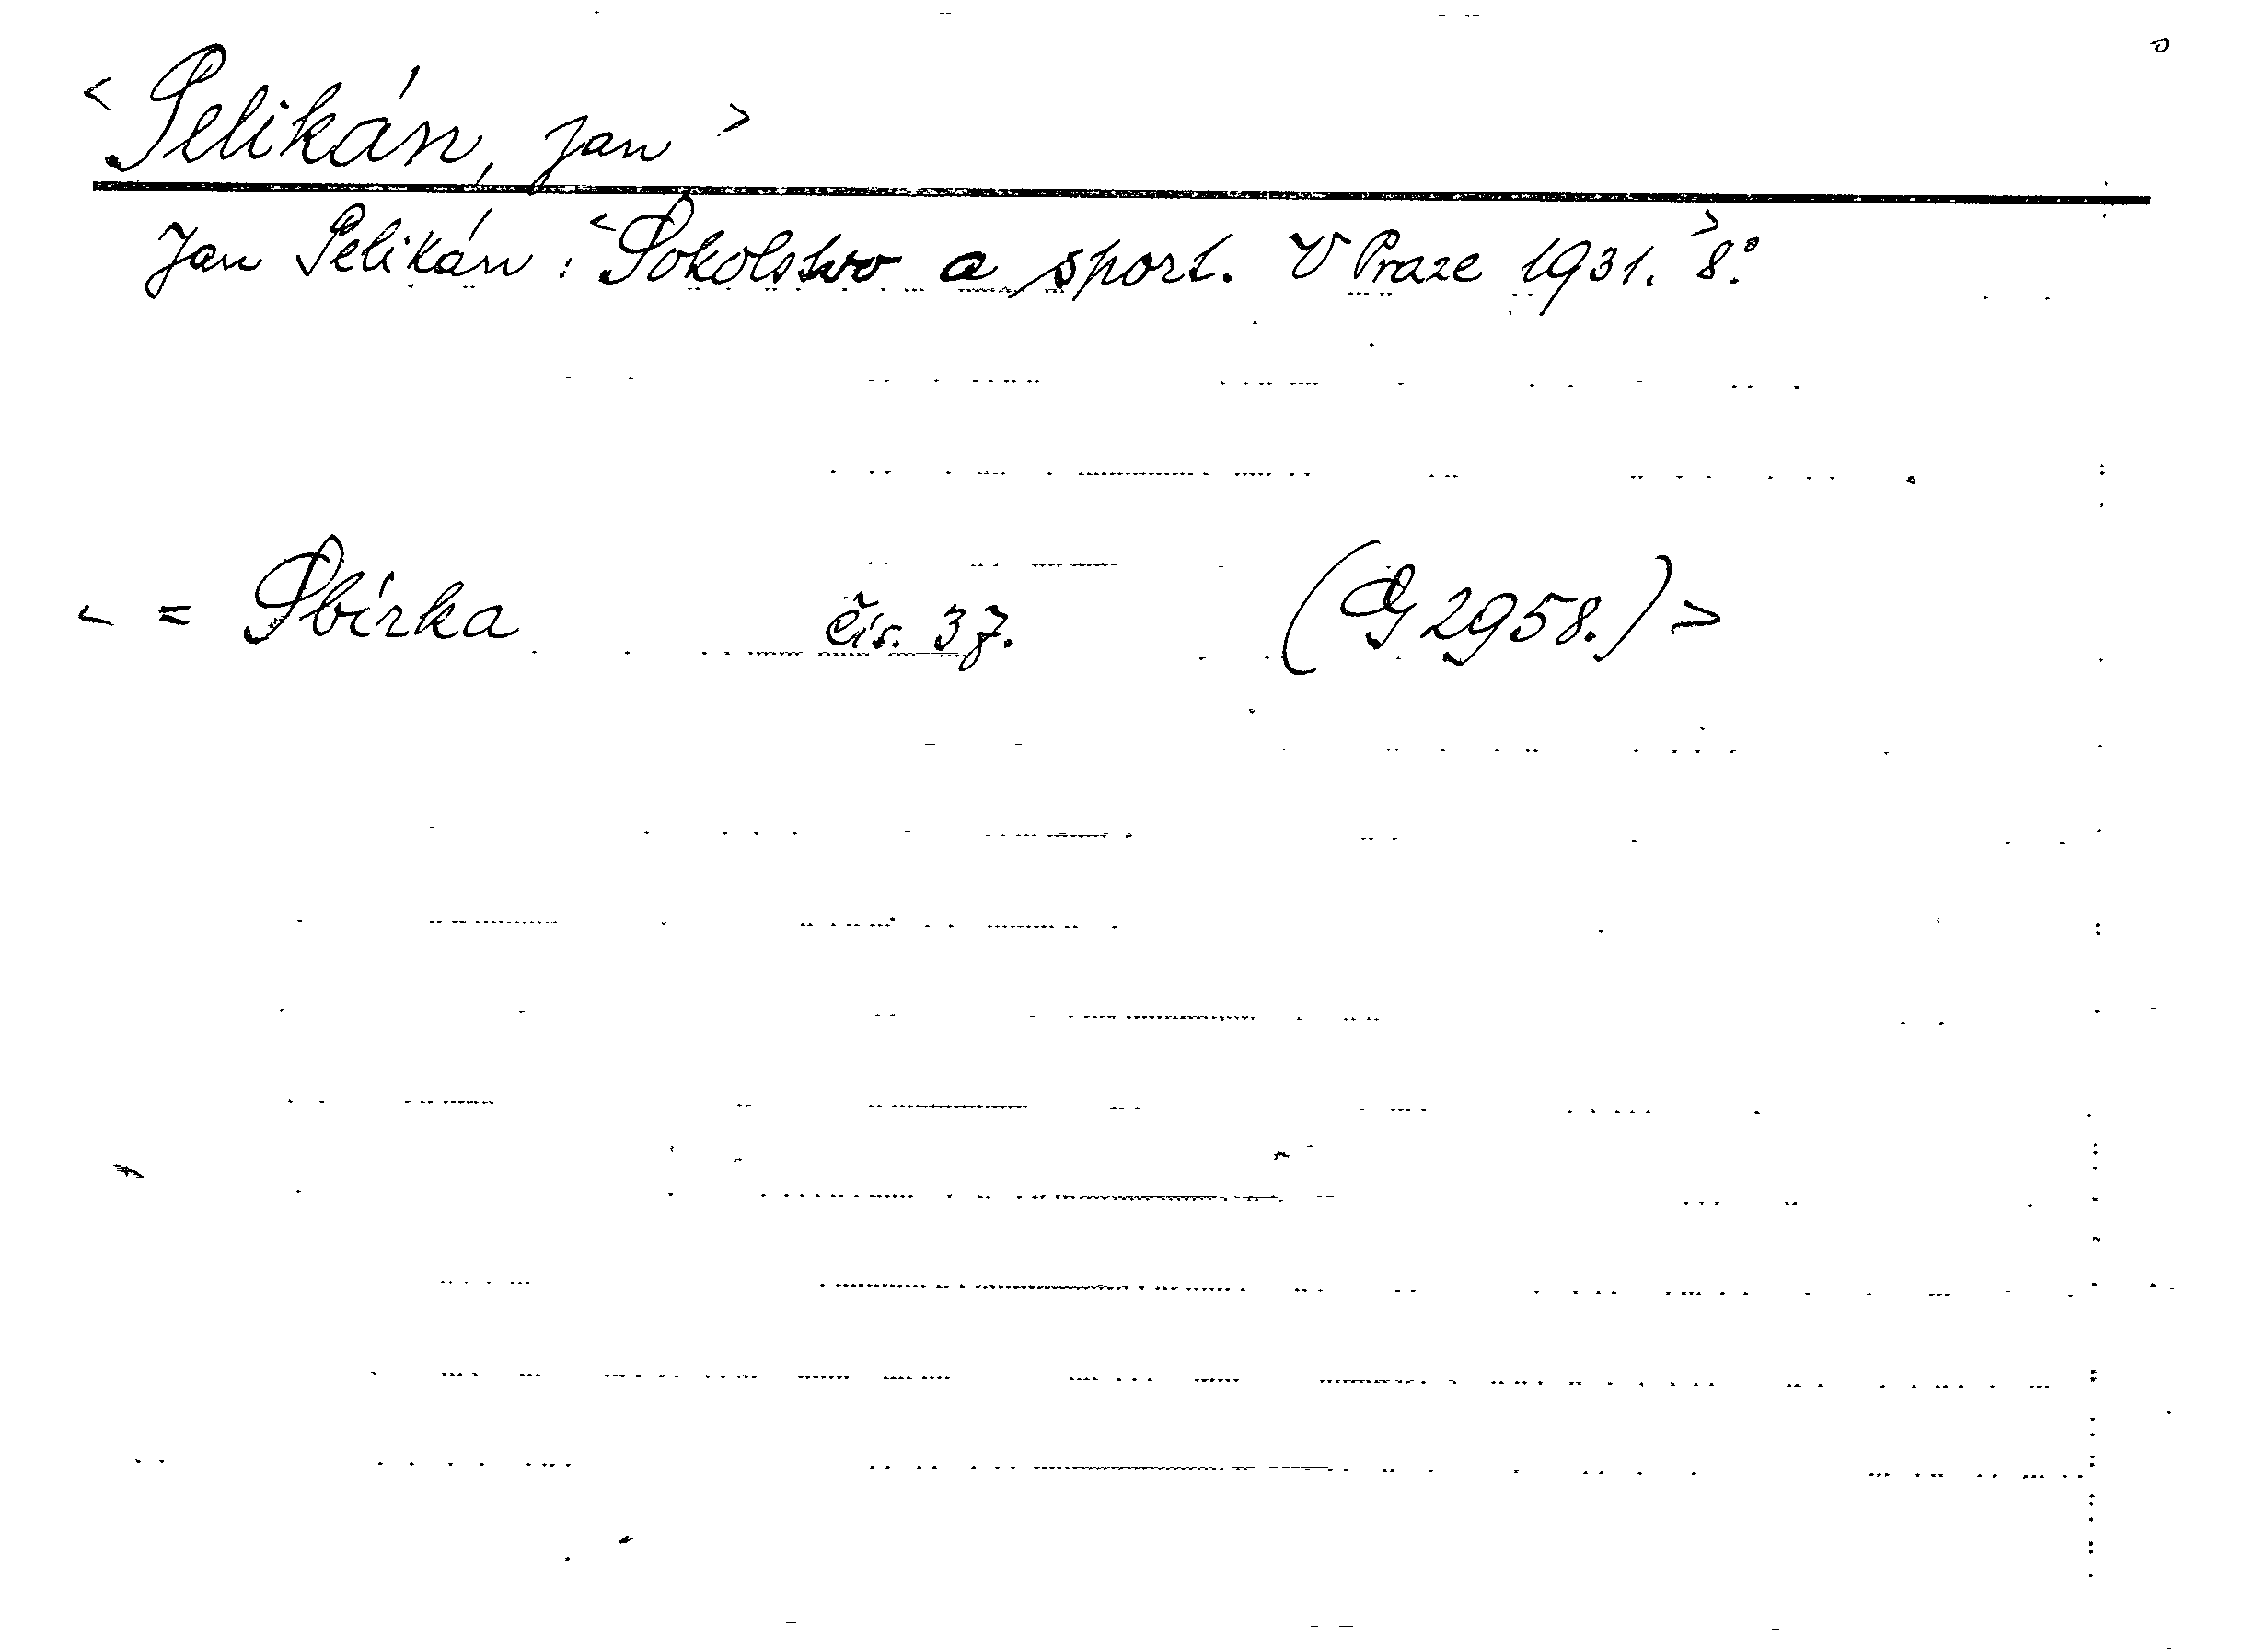 < Pelikán, Jan >
Jan Pelikán: <Sokolstvo a sport. V Praze 1931.> 8°.
< = Sbírka čís. 37. (G 2958.) >